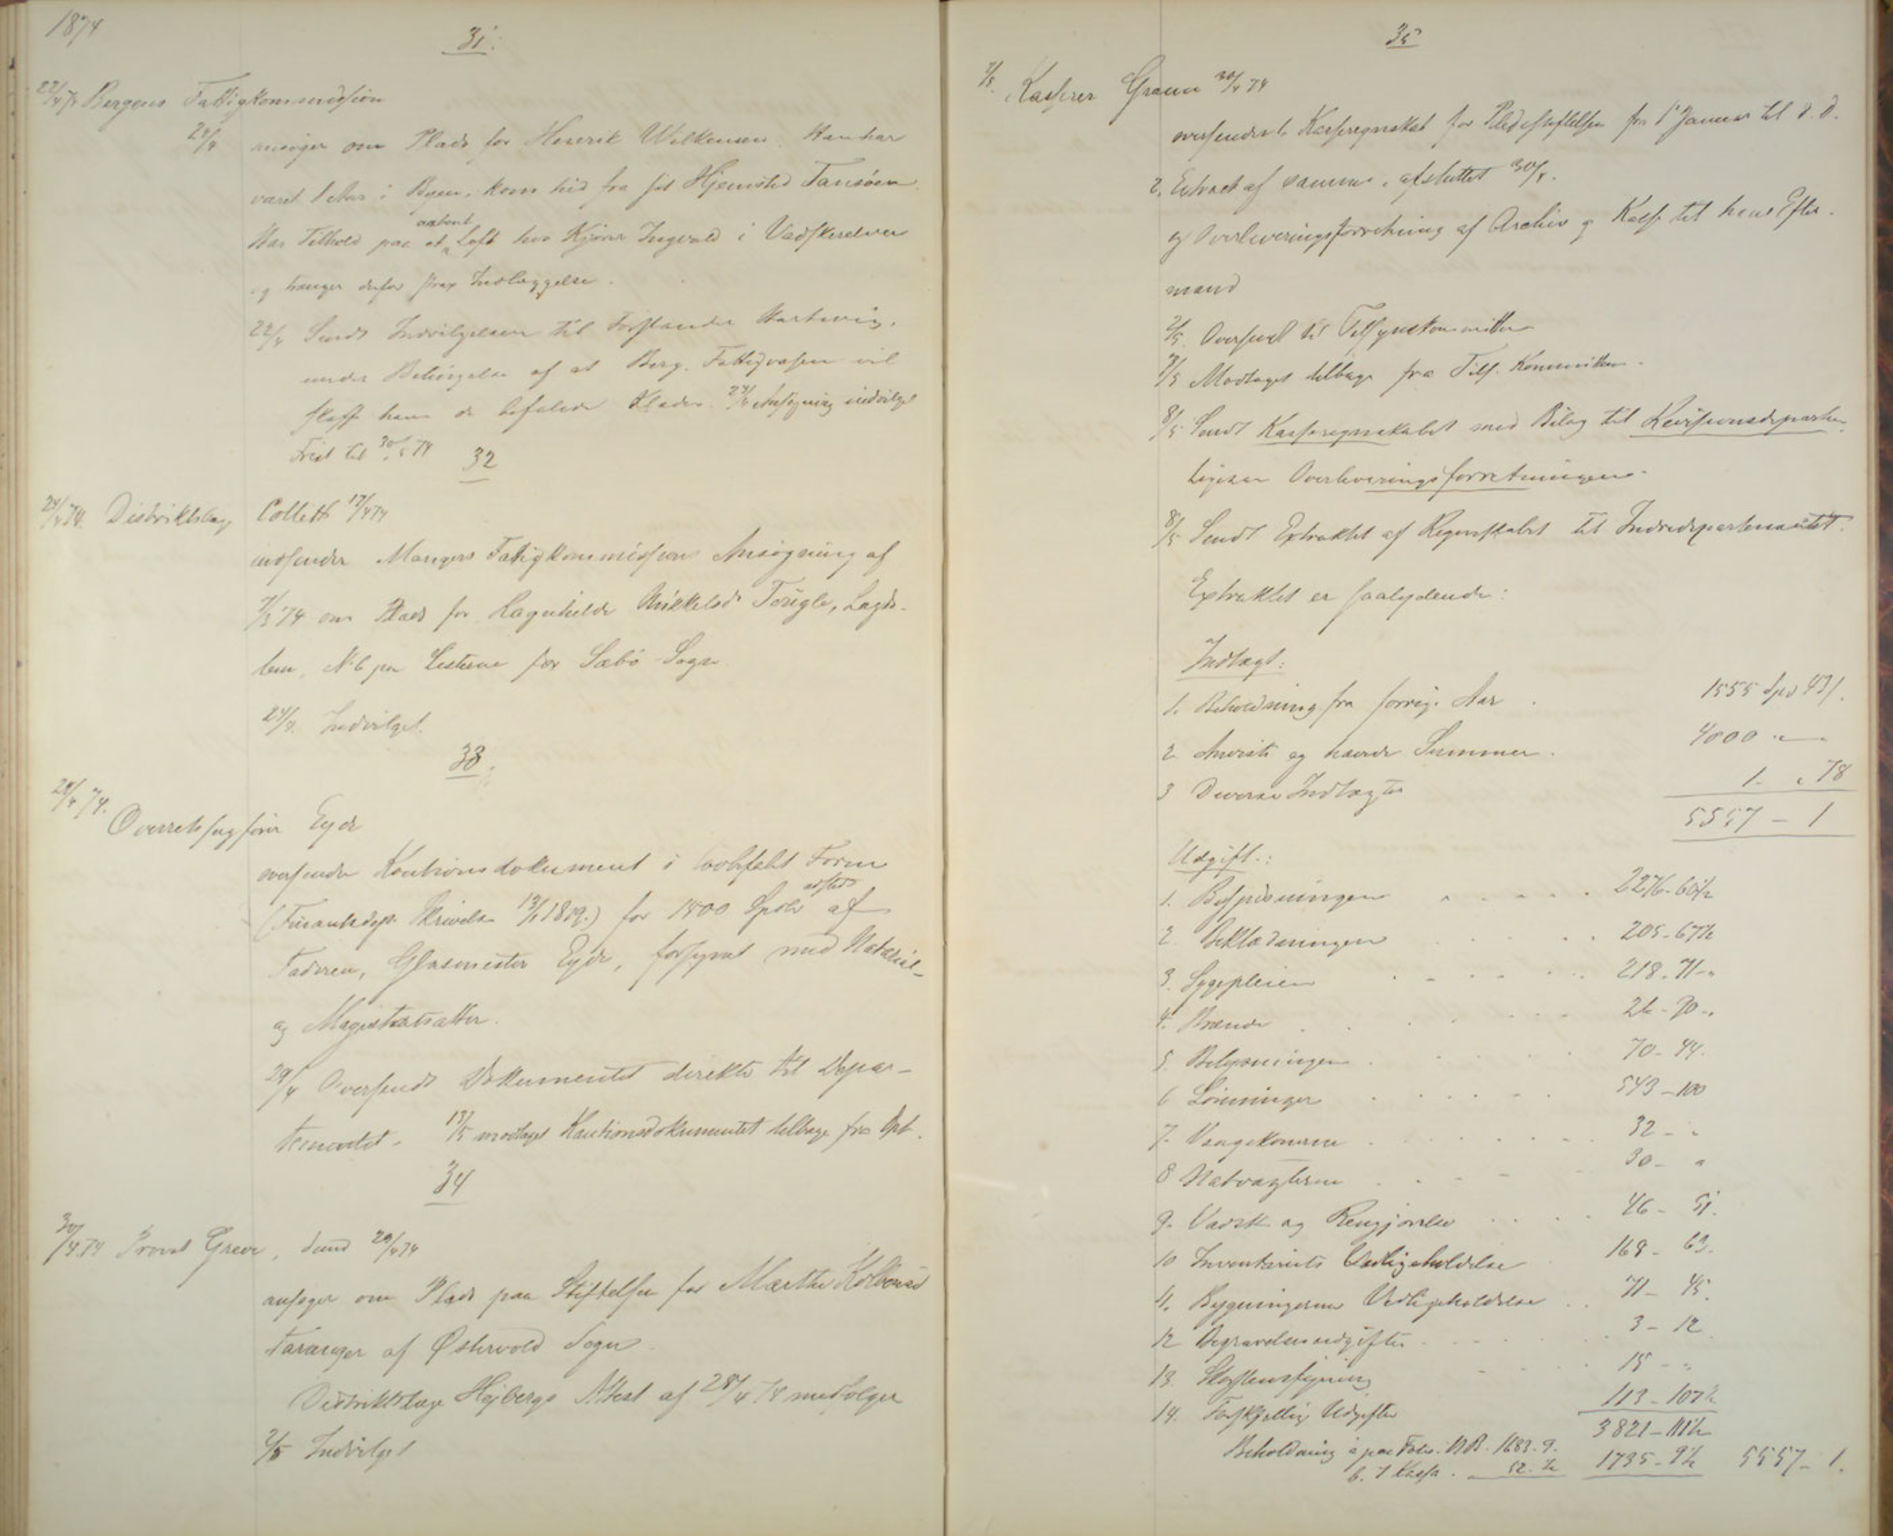 1874
31.
22/4 74 Bergens Fattigkommission
20/4 ansøger om Plads for Henrik Wilkensen. Han har
været 1 Aar i Byen, kom hid fra sit Hjemsted
Har Tilhold paa et aabent Loft hos Kjører Ingvald i
og trænger derfor strax Indlæggelse.
22/4 Sendt Indvilgelsen til Forstander
under Betingelse af at Berg. Fattigvæsen vil
skaffe ham de befalede Klæder. Ansøgning indvilget
Frist til 30/5 74
32
24/4 74. Distriktslæge Collett 17/4 74
indsender Mangers Fattigkommissions Ansøgning af
7/3 74 om Plads for Ragnhilde Mikkelsd.
No 6 paa Listerne for Sæbø Sogn
24/4. Indvilget.
33.
28/4 74. Overretssagfører Eyde
oversender Kautionsdokument i lovbefalet Form
(Finantsdept. Skrivelse ) for 1500 Spdlr udstedt af
Faderen, Glasmester Eyde, forsynet med Notarial-
og Magistratsatter.
29/4 Oversendt Dokumentet direkte til Depar-
tementet - 13/5 modtaget Kautionsdokumentet tilbage fra Dpt.
34
30/4 74 Provst Greve, 29/4 74
ansøger om Plads paa Stiftelsen for Marthe
Taranger af Østervold Sogn
Distriktslæge Højbergs Attest af 28/4 74 medfølger
2/5 Indvilget
35
2/5. Kasserer Grann 30/4 74
oversender 1. Kasseregnskabet for Pleiestiftelsen fra 1 Januar til d. D.
2. Extract af samme, afsluttet 30/4.
og Overleveringsforretning af Archiv og Kasse til hans Efter-
mand
2/5. Oversendt til Tilsynskommitteen
7/5 Modtaget tilbage fra Tils. Kommitteen.
8/5 Sendt Kasseregnskabet med Bilag til Revisionsdepartem.
ligesaa Overleveringsforretningen.
8/5 Sendt Extraktet af Regnskabet til Indredepartementet.
Extraktet er saalydende:
Indtægt:
1. Beholdning fra forrige Aar . 1555 Spd 43 /.
2 Anviste og hævede Summer . 4000 " — "
3 Diverse Indtægter 1 - " 78
5557 - 1
Udgift.:
1. Bespisningen 2276 - 60½
2. Beklædningen 205 - 67½
3. Sygepleien 218 - 71 - "
4. Brænde 26 - 70 - "
5. Belysningen 70 - 44.
6 Lønninger 543 - 100
7. Vaagekonerne 32 - "
8 Natvagterne 30 - "
9. Vadsk og Rengjørelse 46 - 51.
10 Inventariets Vedligeholdelse 168 - 63.
11. Bygningernes Vedligeholdelse 71 - 45.
12 Begravelsesudgifter 3 - 12
13. Skorstensfejning 15 - "
14. Forskjellige Udgifter 113 - 107½
3821 - 111½
Beholdning a paa Folio. N.B. 1683. 9.
b. I Kassa . 52. ½ 1735 - 9½ 5557 - 1.